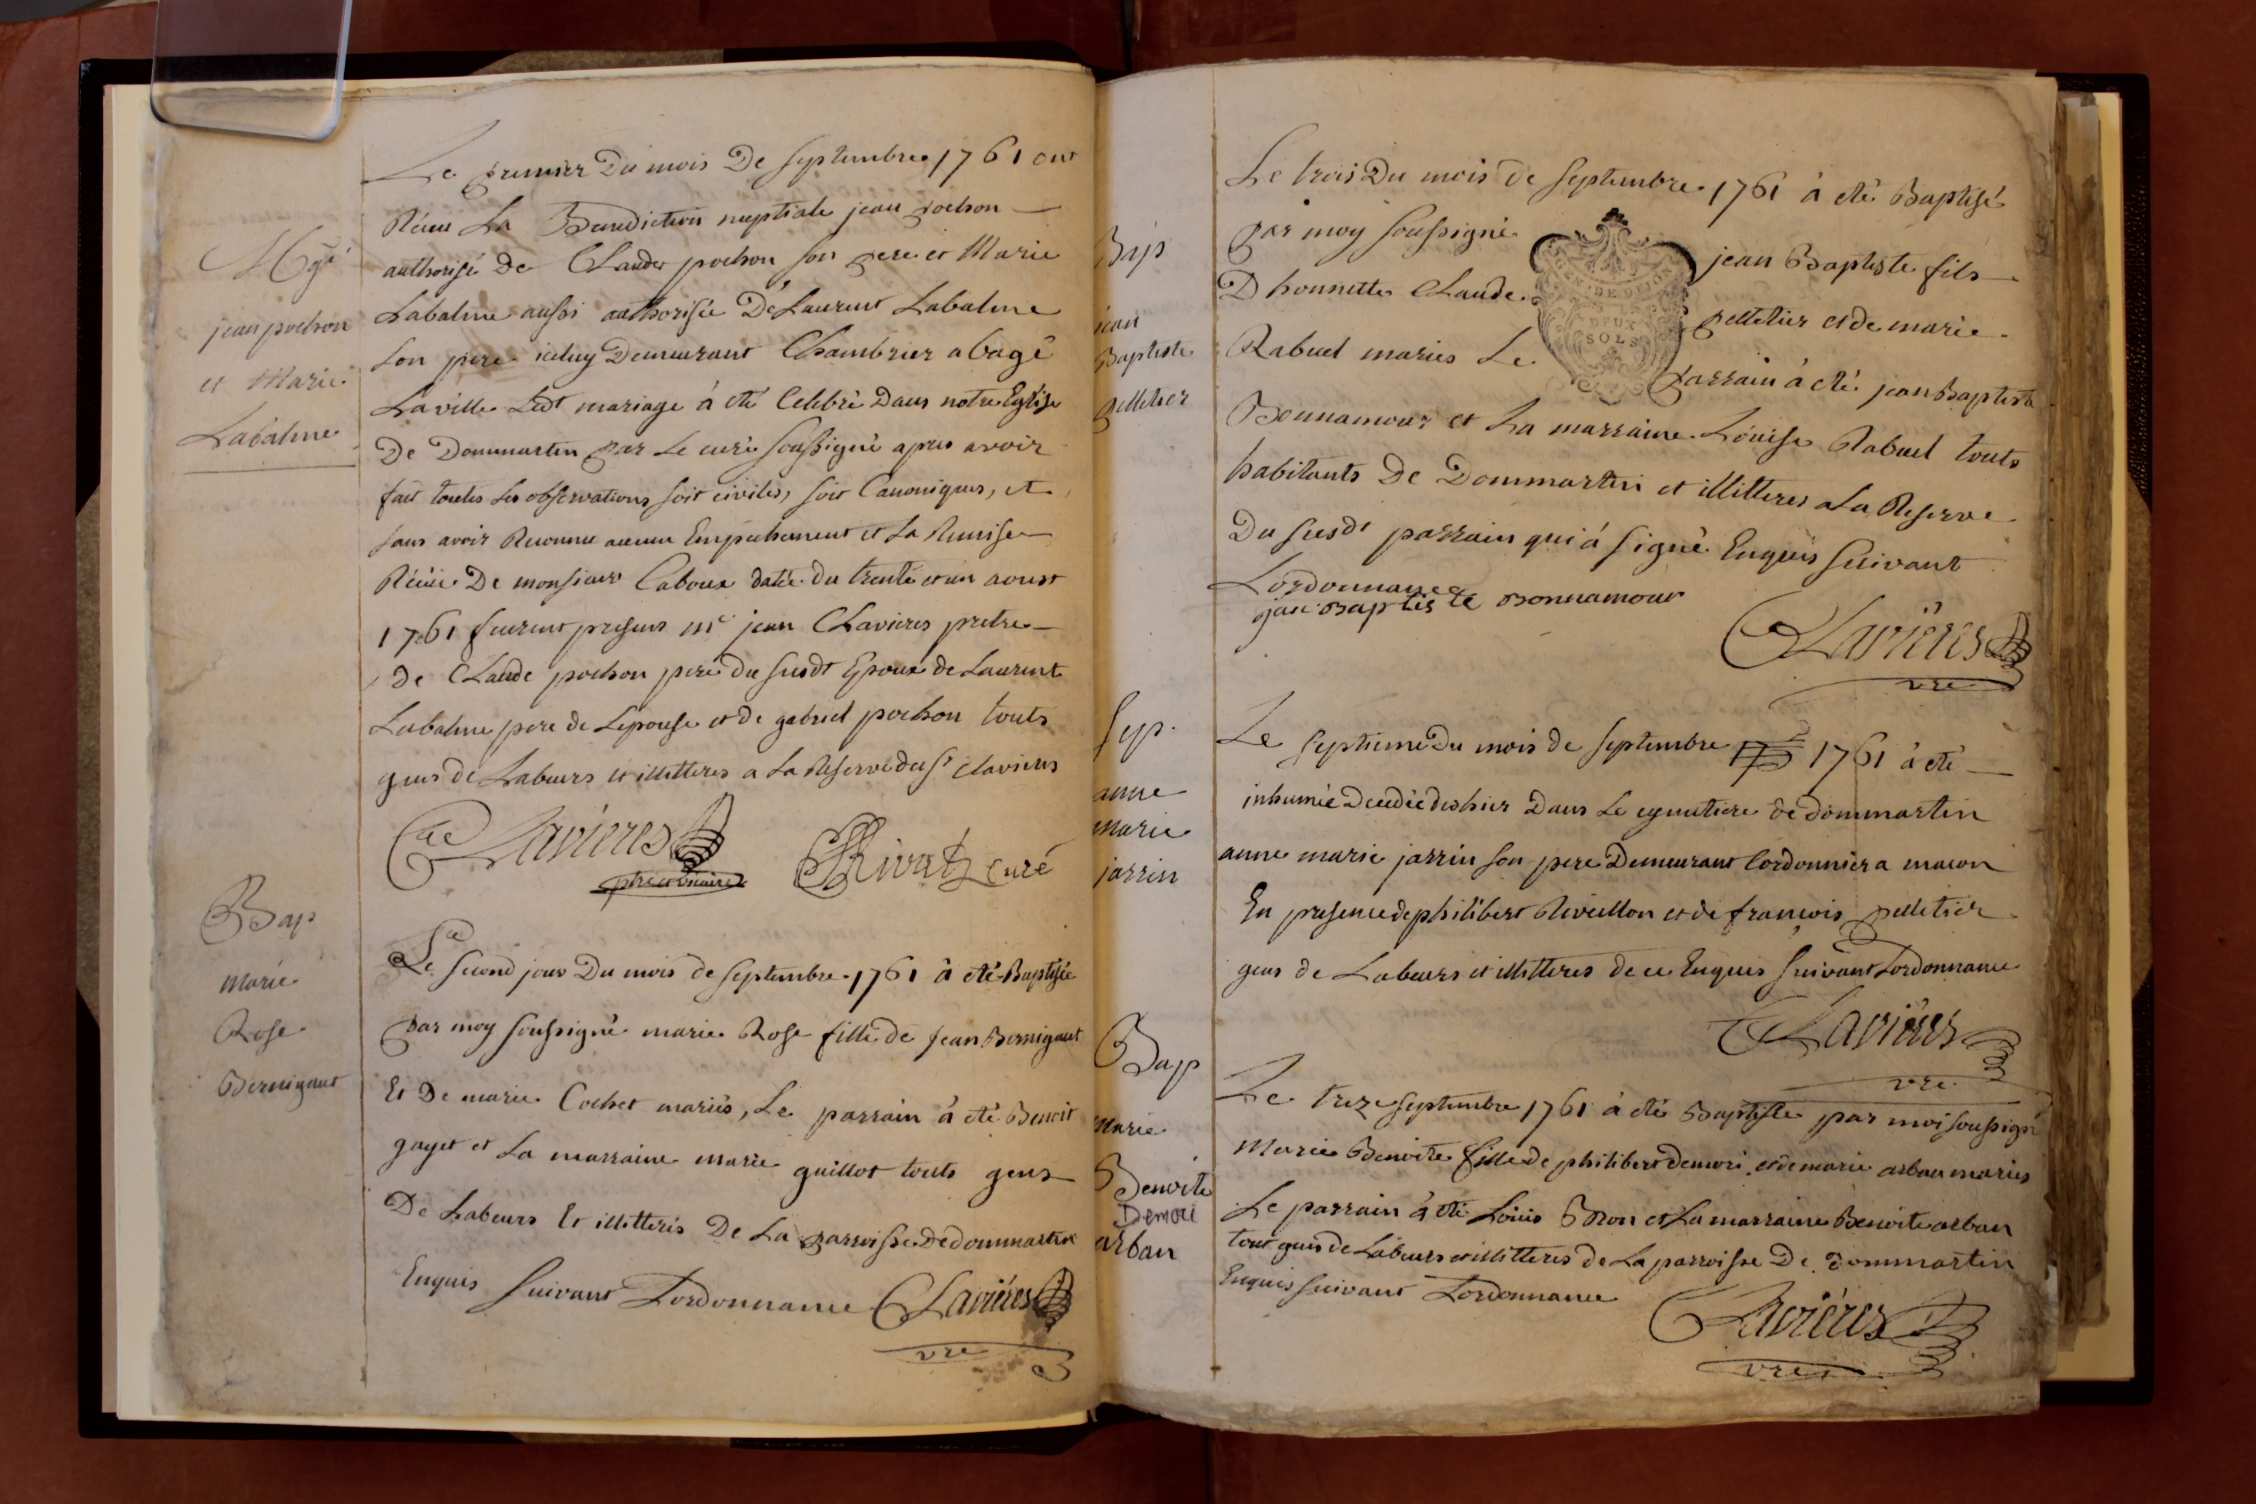 Le premier Du mois De Septembre 1761 ont
Réceu La Benediction nuptiale jean pochon
authorisé De Claude pochon son pere et Marie
Labalme aussi authorisée De Laurent Labalme
Son pere iceluy Demeurant Chambrier a bagé
La ville Ledt mariage á eté Celebré Dans notre Eglise
De Dommartin par Le curé soussigné apres avoir
fait toutes Les observations soit civiles, soit Canoniques, et
sans avoir Reconnu aucun Empechement et La Remise
Réçüe De monsieur Caboux datée du trente et un aoust
1761 furent presens mr jean Clavieres pretre
de Claude pochon pere du susdt Epoux de Laurent
Labalme pere de Lepouse et de gabriel pochon touts
gens de Labeurs et illitteres a La Reserve du sr Clavieres
Clavieres
ptre et vicaire
Rivat curé
Mgé
jean pochon
et Marie
Labalme
Le second jour Du mois de septembre 1761 â eté Baptisée
Par moy soussigné marie Rose fille de Jean Bernigaut
Et De marie Cochet mariés, Le parrain â eté Benoit
gayet et La marraine marie guillot touts gens
De Labeurs Et illitterés De La parroisse De dommartin
Enquis suivant Lordonnance Clavières
vre
Bap
marie
Rose
Bernigaut
Le trois Du mois de septembre 1761 á eté Baptisé
par moy soussigné jean Baptiste fils
D honnette Claude pelletier et de marie
Rabuel mariés Le parrain á eté jean Baptiste
Bonnamour et La marraine Louise Rabuel touts
habitants De Dommartin et illitteres a La Reserve
Du susdt parrain qui á signé Enquis suivant
Lordonnance
jan Baptiste Bonnamour
Clavières
vre
GEN. DE DIJON
DEUX
SOLS
Bap
jean
Baptiste
pelletier
Le septieme Du mois de septembre 1761 á eté
inhumée Decedée deshier Dans Le cymetiere de dommartin
anne marie jarrin son pere Demeurant Cordonnier a macon
En presence de philibert Reveillon et de françois pelletier
gens de Labeurs et illitteres de ce Enquis suivant Lordonnance
Clavières
vre
Sep.
anne
marie
jarrin
Le treze septembre 1761 á eté Baptisée par moi soussigné
Marie Benoite fille de philibert demori et de marie arban mariés
Le parrain á eté Loüis Bron et La marraine Benoite arban
tout gens de Labeurs et illitteres de La parroisse De Dommartin
Enquis suivant Lordonnance
Clavières
vre
Bap
Marie
Benoite
Demori
arban